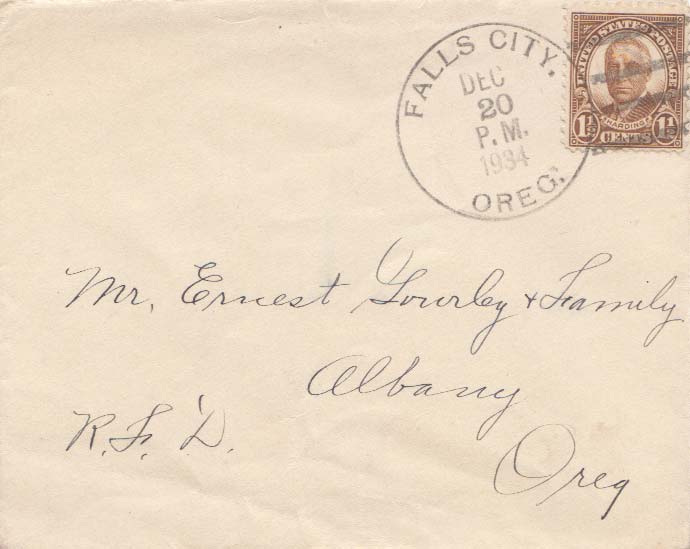 FALLS CITY,
DEC
20
P.M.
1934
OREG.
UNITED STATES POSTAGE
HARDING
1½ CENTS 1½
Mr. Ernest Gourley & Family
Albany
R. F. D.
Oreg